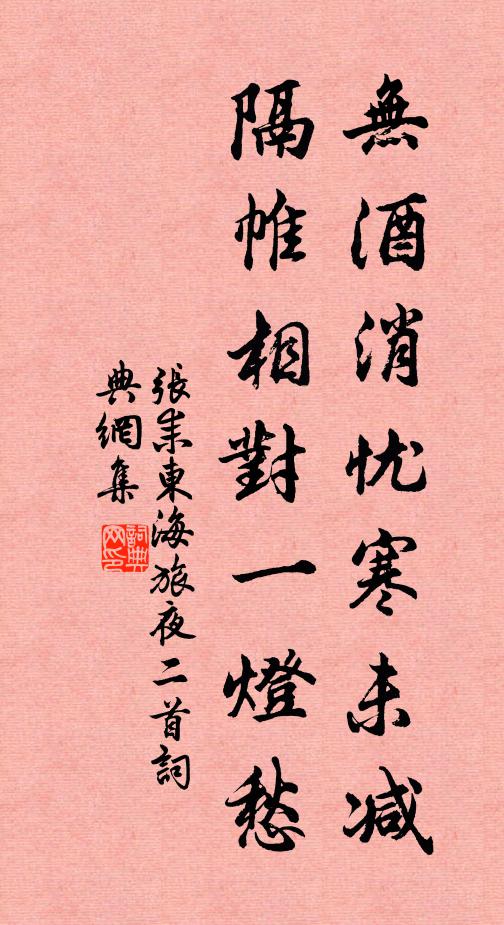 無酒消忧寒未减
隔帷相對一燈愁
張耒東海旅夜二首詞
典網集
詞典网印